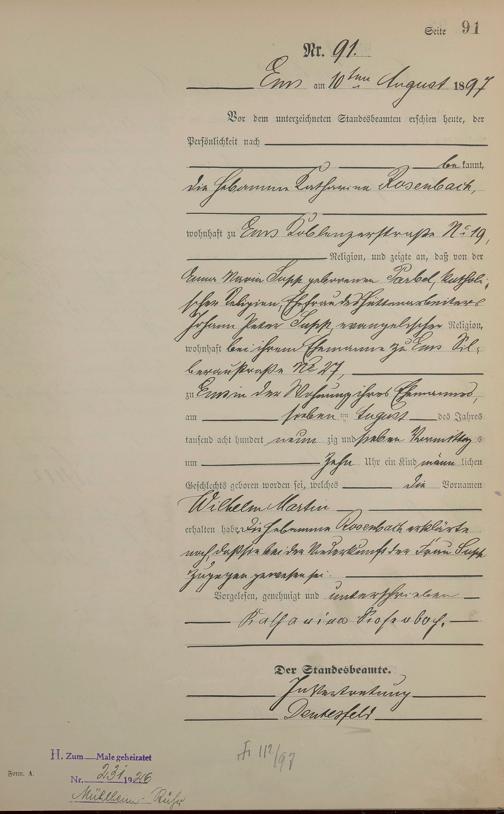 Seite 91
Nr. 91.
Ems am 10ten August 1897
Vor dem unterzeichneten Standesbeamten erschien heute, der
Persönlichkeit nach
bekannt,
die Hebamme Katharina Rosenbach,
wohnhaft zu Ems Koblenzerstraße No 19,
Religion, und zeigte an, daß von der
Anna Maria geborenen katholi-
schen Religion, Ehefrau des Hüttenarbeiters
Johann Peter evangelischer Religion,
wohnhaft bei ihrem Ehemanne zu Ems Sil-
beraustraße No 27,
zu Ems in der Wohnung ihres Ehemannes,
am sieben ten August des Jahres
tausend acht hundert neun zig und sieben Vormittags
um Zehn Uhr ein Kind männlichen
Geschlechts geboren worden sei, welches die Vornamen
Wilhelm Martin
erhalten habe. Die Hebamme Rosenbach erklärte
noch, daß sie bei der Niederkunft der Frau
zugegen gewesen sei.
Vorgelesen, genehmigt und unterschrieben
Katharina Rosenbach.
Der Standesbeamte.
In Vertretung
H. Zum Male geheiratet
Nr. 231 1926
Mülheim-Ruhr
Form. A.